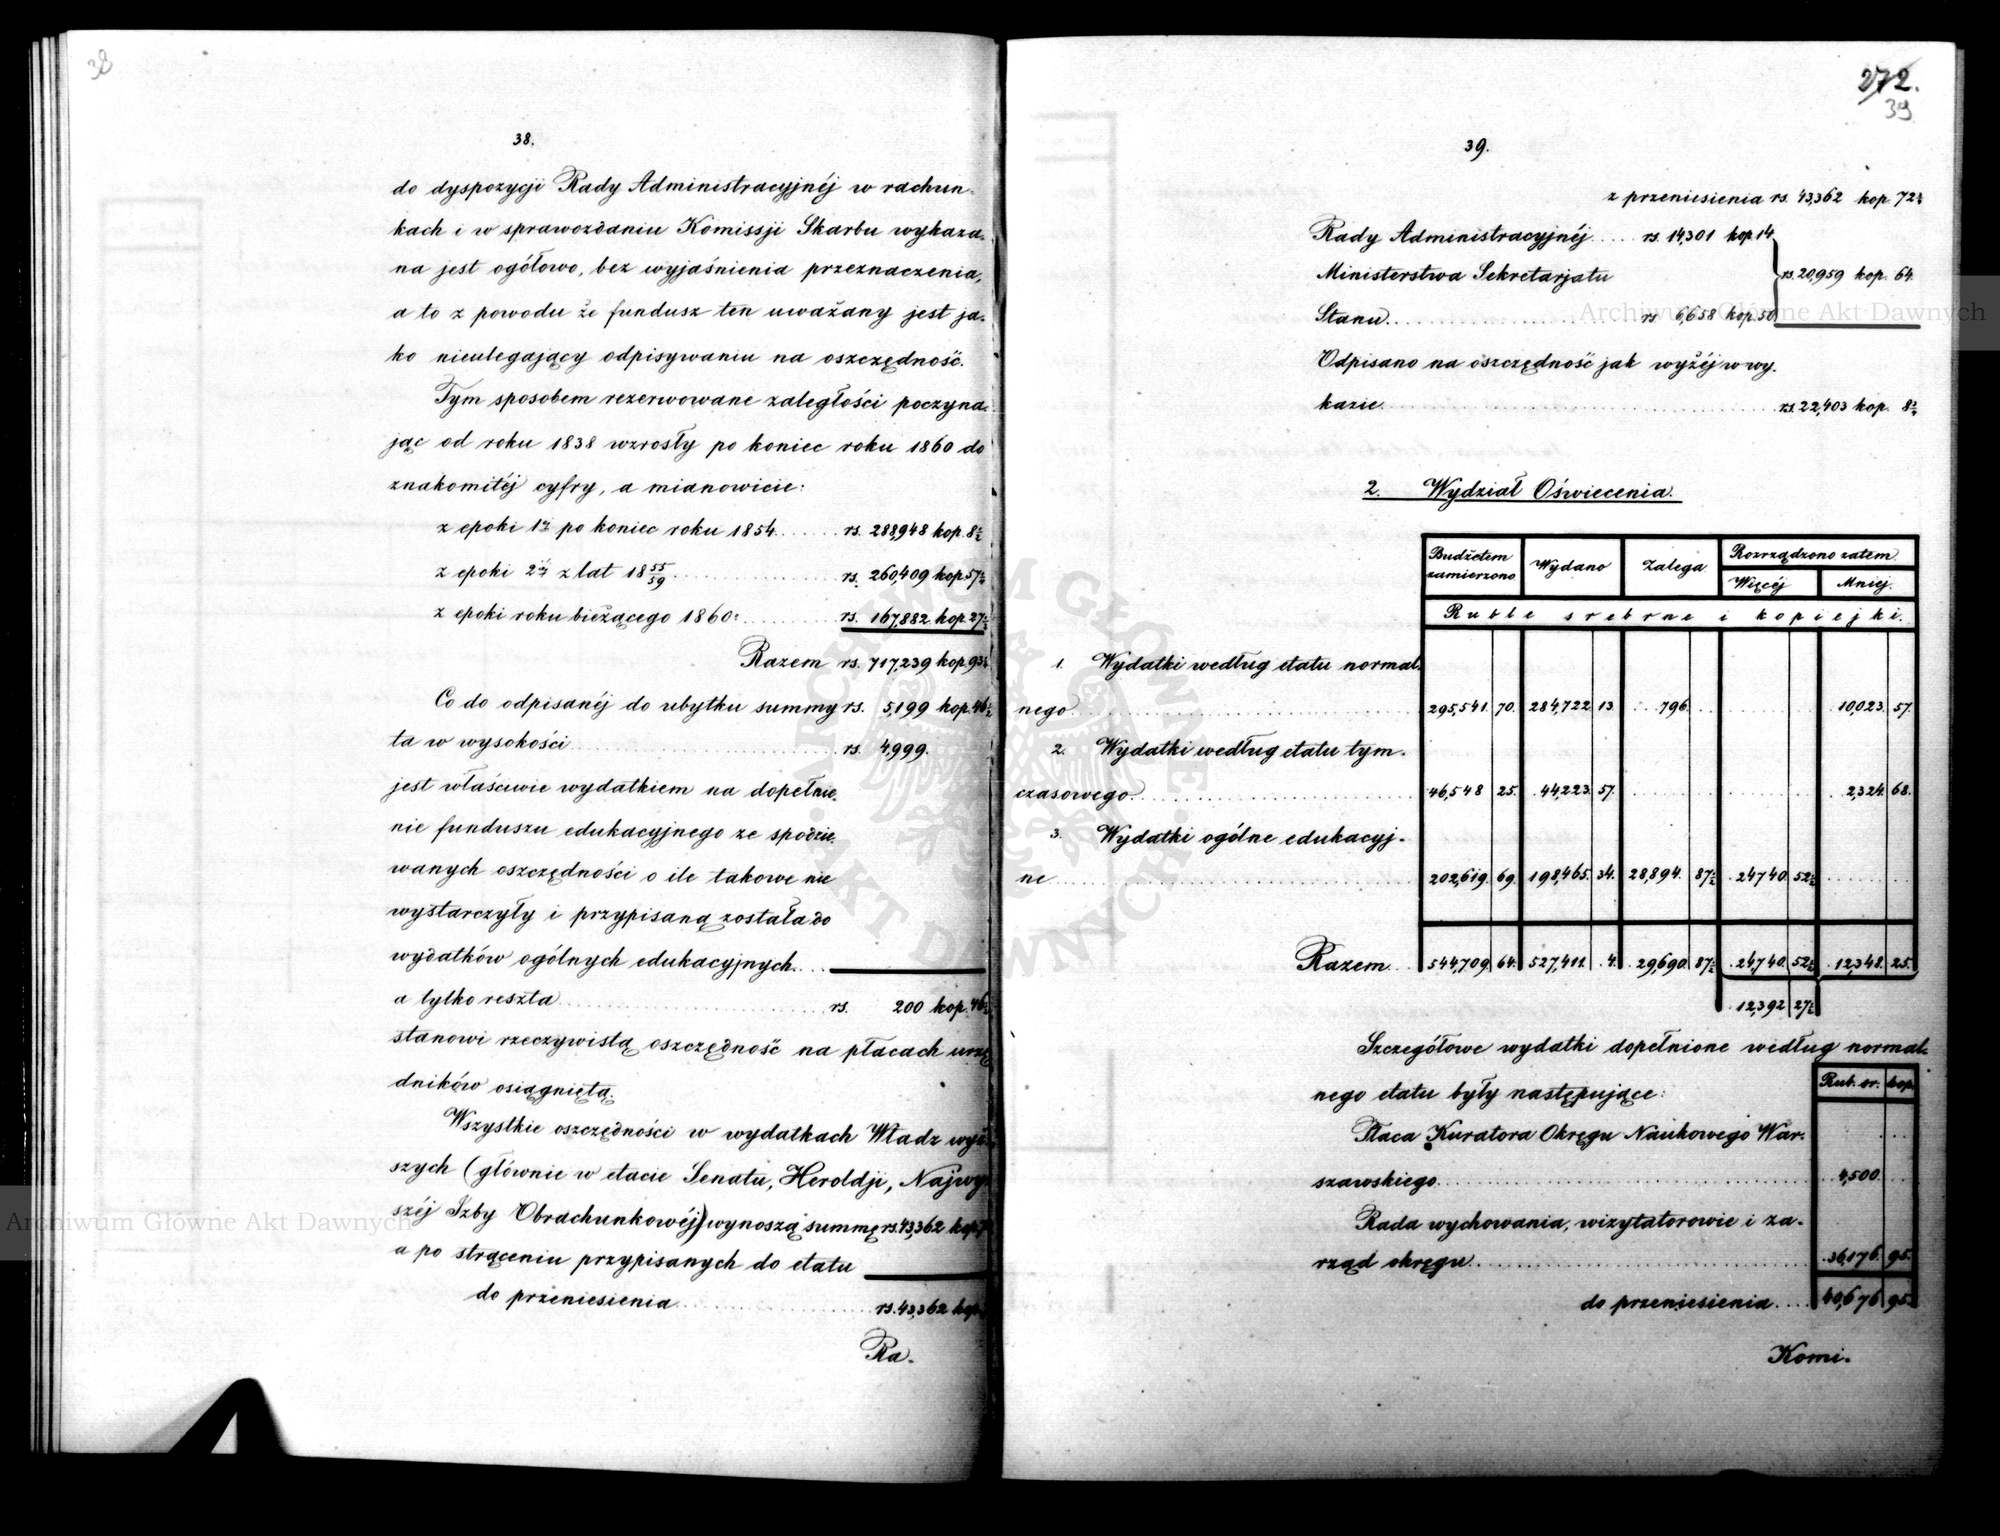 38
38.
do dyspozycji Rady Administracyjnéj w rachun-
kach i w sprawozdaniu Komissji Skarbu wykaza-
na jest ogółowo, bez wyjaśnienia przeznaczenia,
a to z powodu że fundusz ten uważany jest ja-
ko nieulegający odpisywaniu na oszczędność.
Tym sposobem rezerwowane zaległości poczyna-
jąc od roku 1838 wzrosły po koniec roku 1860 do
znakomitéj cyfry, a mianowicie:
z epoki 1éj po koniec roku 1854 ...... rs. 288,948 kop. 8½
z epoki 2éj z lat 18 55/59 ............ rs. 260,409 kop. 57½
z epoki roku bieżącego 1860: ......... rs. 167,882 kop. 27½
Razem rs. 717,239 kop. 93½
Co do odpisanéj do ubytku summy rs. 5,199 kop. 46½
ta w wysokości ............ rs. 4,999.
jest właściwie wydatkiem na dopełnie-
nie funduszu edukacyjnego ze spodzie-
wanych oszczędności o ile takowe nie
wystarczyły i przypisaną została do
wydatków ogólnych edukacyjnych....
a tylko reszta ............ rs. 200 kop. 46½
stanowi rzeczywistą oszczędność na płacach urzę
dników osiągniętą.
Wszystkie oszczędności w wydatkach Władz wyż-
szych (głównie w etacie Senatu, Heroldji, Najwy
széj Izby Obrachunkowéj) wynoszą summę rs. 43,362 kop.
a po strąceniu przypisanych do etatu
do przeniesienia ............ rs. 43,362 kop.
Ra-
272.
39
39.
z przeniesienia rs. 43,362 kop 72½
Rady Administracyjnéj ..... rs. 14,301 kop 14
Ministerstwa Sekretarjatu rs. 20,959 kop. 64.
Stanu ............ rs. 6,658 kop. 50
Odpisano na oszczędność jak wyżéj w wy-
kazie ............ rs. 22,403 kop. 8½
2. Wydział Oświecenia.
Budżetem zamierzono Wydano Zalega Rozrządzono zatem
Więcéj Mniej.
Ruble srebrne i kopiejki.
1. Wydatki według etatu normal-
nego ............ 295,541. 70. 284,722 13 796. 10,023. 57.
2. Wydatki według etatu tym-
czasowego ............ 46,548 25. 44,223. 57. 2,324. 68.
3. Wydatki ogólne edukacyj-
ne ............ 202,619. 69. 198,465. 34. 28,894. 87½ 24740. 52½
Razem 544,709. 64. 527,411. 4. 29,690. 87½ 24,740. 52½ 12,348. 25.
12,392 27½
Szczegółowe wydatki dopełnione według normal-
nego etatu były następujące: Rub. sr. kop.
Płaca Kuratora Okręgu Naukowego War-
szawskiego ............ 4,500.
Rada wychowania, wizytatorowie i za-
rząd okręgu ............ 36,176. 95.
do przeniesienia .... 40,676 95.
Komi-
Archiwum Główne Akt Dawnych
Archiwum Główne Akt Dawnych
ARCHIWUM GŁÓWNE AKT DAWNYCH